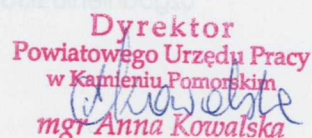 Dyrektor
Powiatowego Urzędu Pracy
w Kamieniu Pomorskim
mgr Anna Kowalska